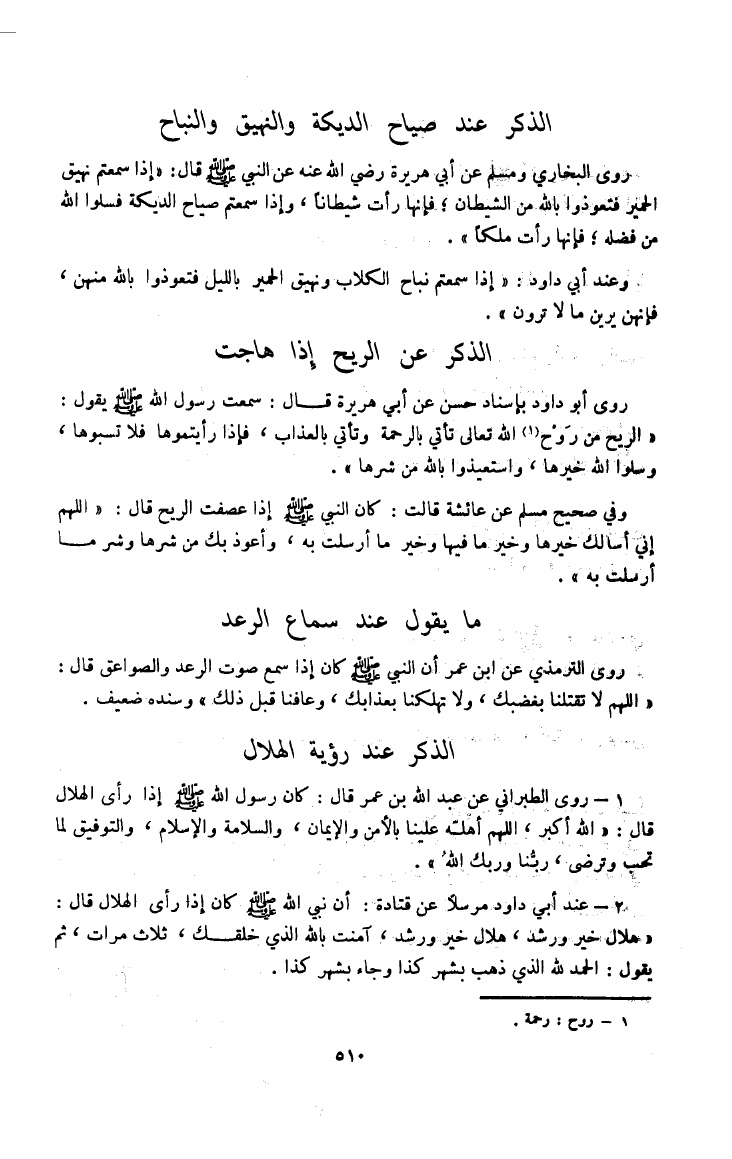 الذكر عند صياح الديكة والنهيق والنباح
روى البخاري ومسلم عن أبي هريرة رضي الله عنه عن النبي ﷺ قال: «إذا سمعتم نهيق
الحمير فتعوذوا بالله من الشيطان ؛ فإنها رأت شيطاناً ، وإذا سمعتم صياح الديكة فسلوا الله
من فضله ؛ فإنها رأت ملكاً » .
وعند أبي داود : « إذا سمعتم نباح الكلاب ونهيق الحمير بالليل فتعوذوا بالله منهن ،
فإنهن يرين ما لا ترون » .
الذكر عن الريح إذا هاجت
روى أبو داود بإسناد حسن عن أبي هريرة قـــال : سمعت رسول الله ﷺ يقول :
« الريح من رَوْح(١) الله تعالى تأتي بالرحمة وتأتي بالعذاب ، فإذا رأيتموها فلا تسبوها ،
وسلوا الله خيرها ، واستعيذوا بالله من شرها » .
وفي صحيح مسلم عن عائشة قالت : كان النبي ﷺ إذا عصفت الريح قال : « اللهم
إني أسالك خيرها وخير ما فيها وخير ما أرسلت به ، وأعوذ بك من شرها وشر مـــا
أرسلت به » .
ما يقول عند سماع الرعد
روى الترمذي عن ابن عمر أن النبي ﷺ كان إذا سمع صوت الرعد والصواعق قال :
« اللهم لا تقتلنا بغضبك ، ولا تهلكنا بعذابك ، وعافنا قبل ذلك » وسنده ضعيف .
الذكر عند رؤية الهلال
١ – روى الطبراني عن عبد الله بن عمر قال : كان رسول الله ﷺ إذا رأى الهلال
قال : « الله أكبر ، اللهم أهلّه علينا بالأمن والإيمان ، والسلامة والإسلام ، والتوفيق لما
تحب وترضى ، ربّنا وربك اللهُ » .
٢ – عند أبي داود مرسلاً عن قتادة : أن نبي الله ﷺ كان إذا رأى الهلال قال :
« هلال خير ورشد ، هلال خير ورشد ، آمنت بالله الذي خلقـــك ، ثلاث مرات ، ثم
يقول : الحمد لله الذي ذهب بشهر كذا وجاء بشهر كذا .
١ – روح : رحمة .
٥١٠